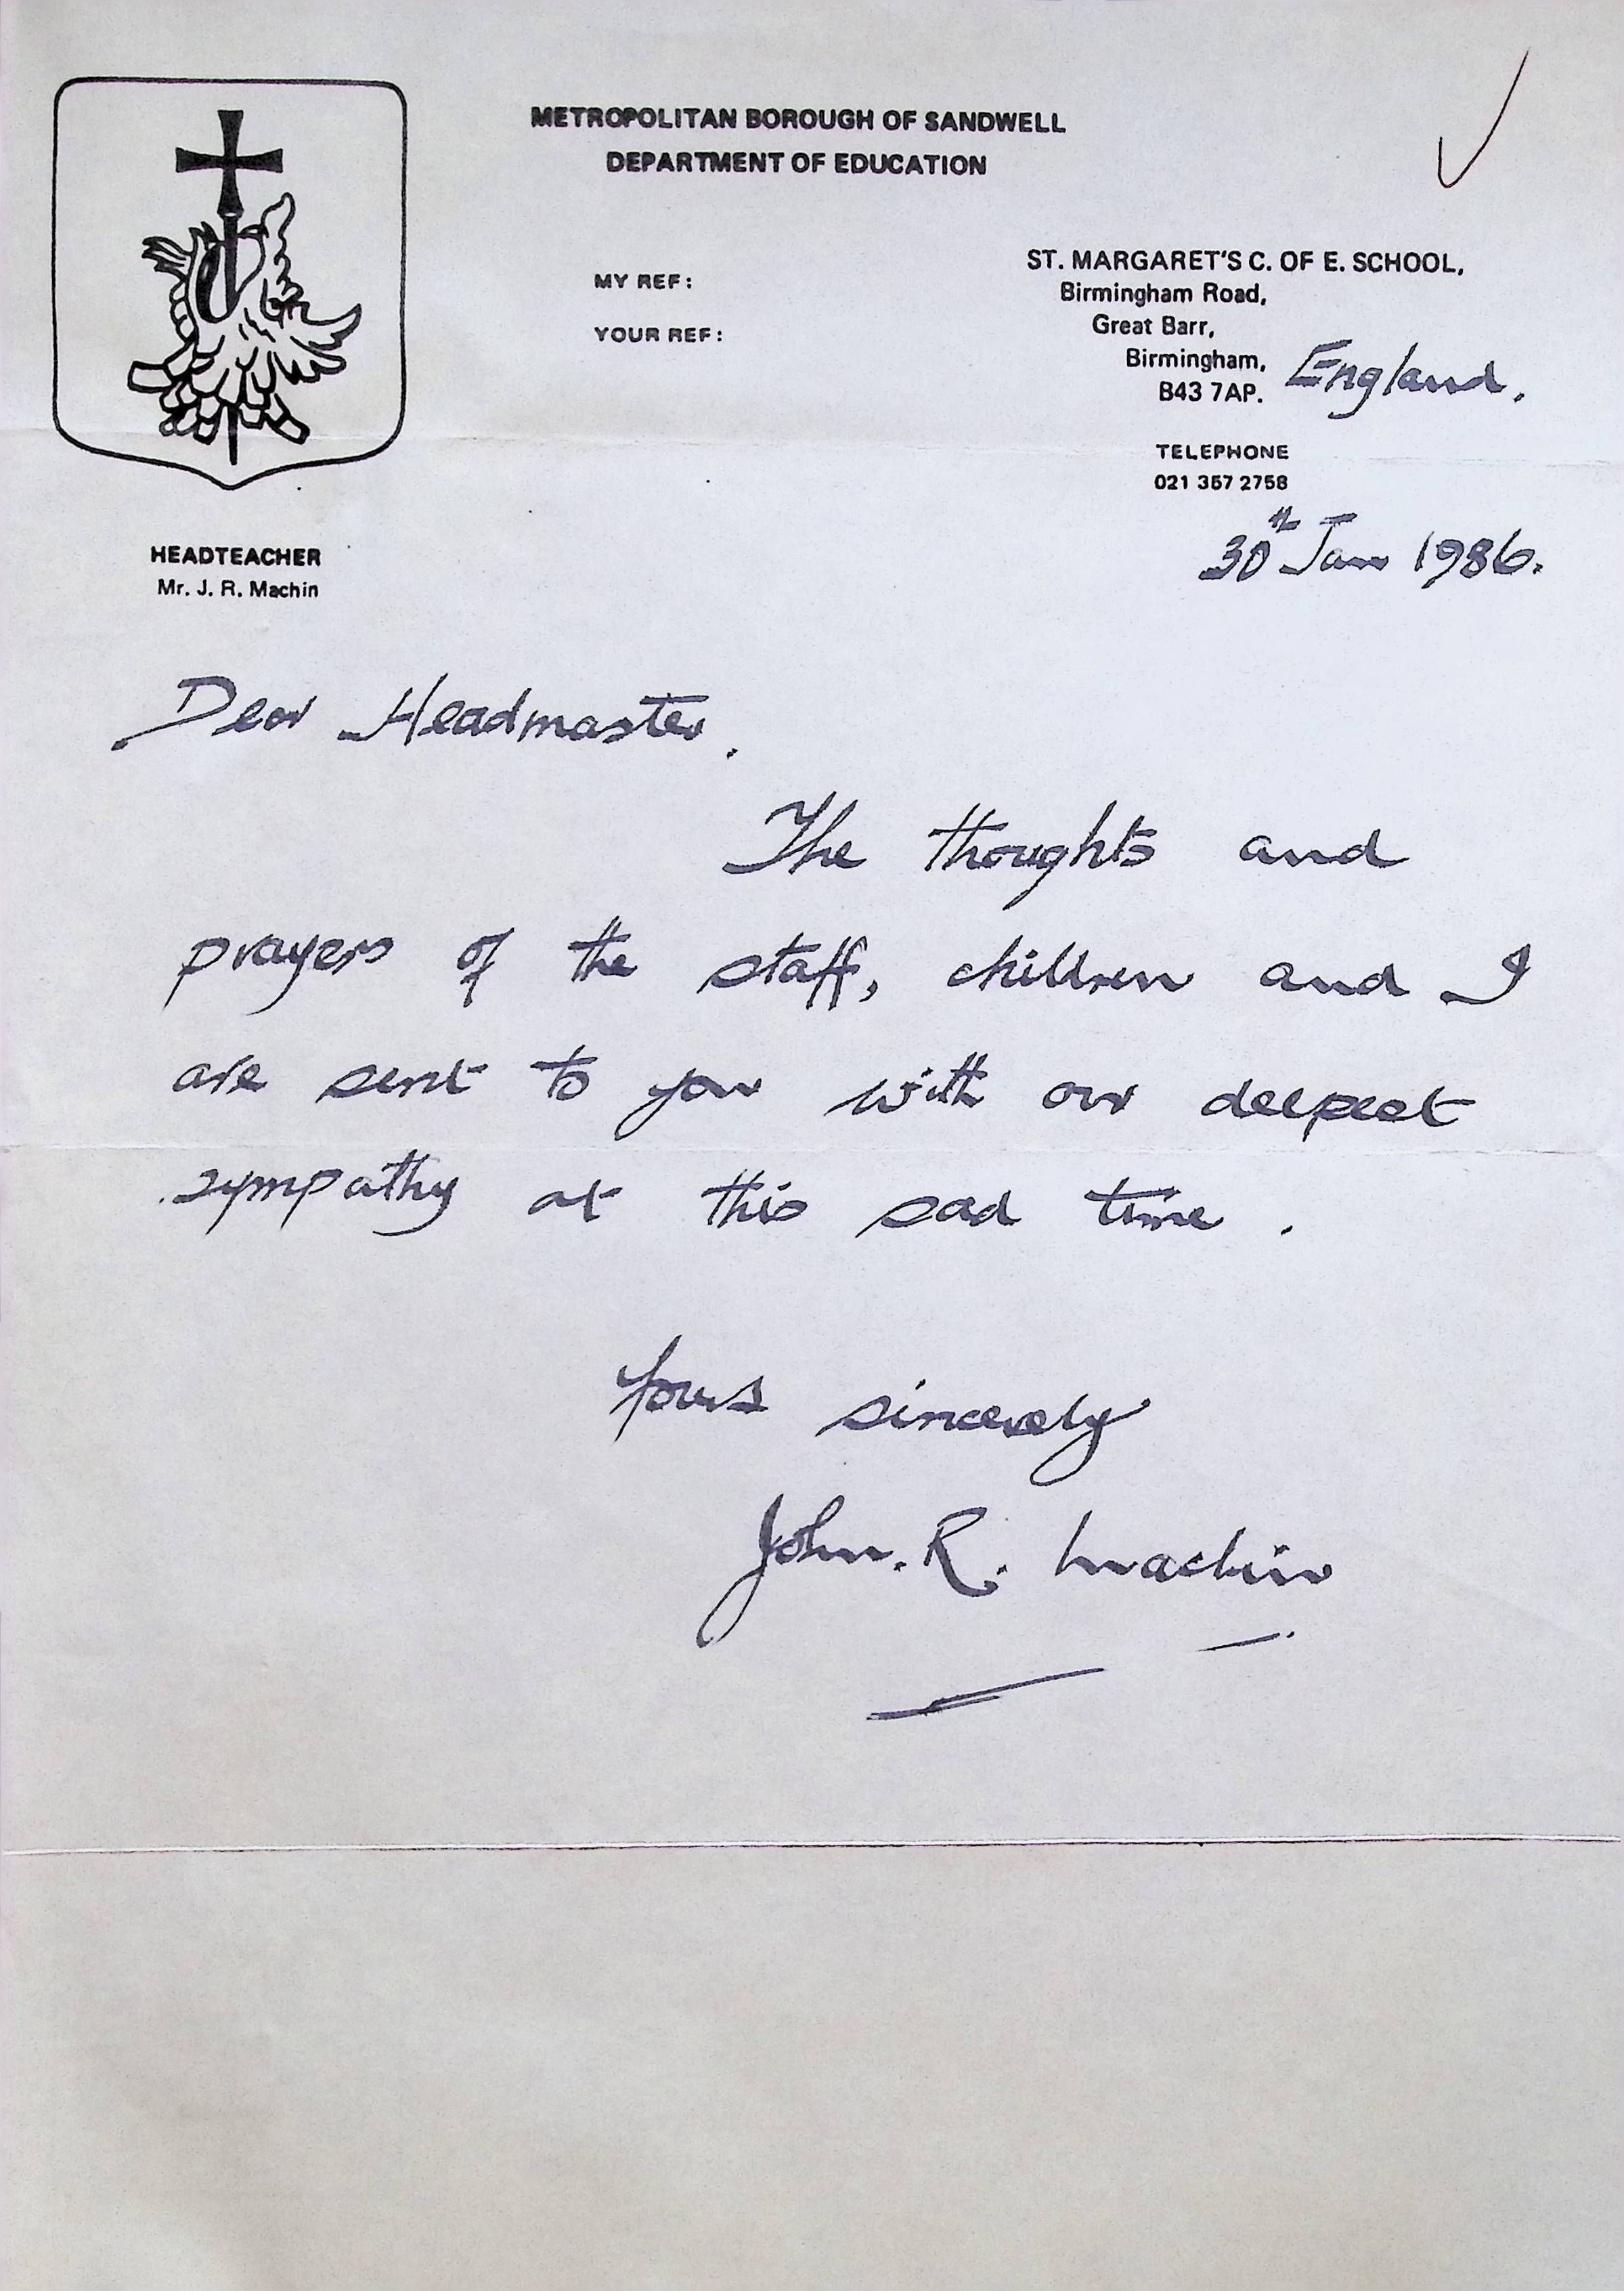 METROPOLITAN BOROUGH OF SANDWELL
DEPARTMENT OF EDUCATION
MY REF:
YOUR REF:
ST. MARGARET'S C. OF E. SCHOOL,
Birmingham Road,
Great Barr,
Birmingham,
B43 7AP. England.
TELEPHONE
021 357 2758
30th Jan 1986.
HEADTEACHER
Mr. J. R. Machin
Dear Headmaster.
The thoughts and
prayers of the staff, children and I
are sent to you with our deepest
sympathy at this sad time.
Yours sincerely
John. R. Machin